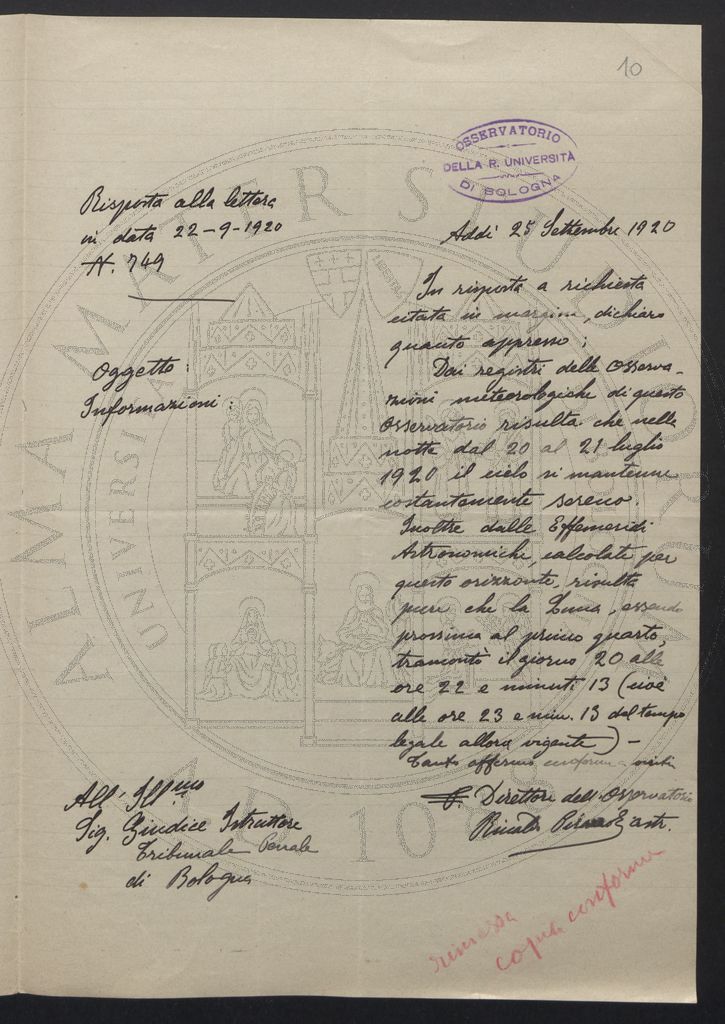 10
OSSERVATORIO
DELLA R. UNIVERSITÀ
DI BOLOGNA
Risposta alla lettera
in data 22-9-1920
N. 749
Oggetto:
Informazioni:
Addì 25 Settembre 1920
In risposta a richiesta
citata in margine, dichiaro
quanto appresso;
Dai registri delle Osserva-
zioni meteorologiche di questo
Osservatorio risulta che nella
notte dal 20 al 21 luglio
1920 il cielo si mantenne
costantemente sereno.
Inoltre dalle Effemeridi
Astronomiche, calcolate per
questo orizzonte, risulta
pure che la Luna, essendo
prossima al primo quarto,
tramontò il giorno 20 alle
ore 22 e minuti 13 (cioè
alle ore 23 e min. 13 del tempo
legale allora vigente) -
Tanto affermo conforme a
Direttore dell'Osservatorio
All' Ill.mo
Sig. Giudice Istruttore
Tribunale Penale
di Bologna
rimessa
copia conforme
ALMA MATER STUDIORUM
UNIVERSI
A.D. 10